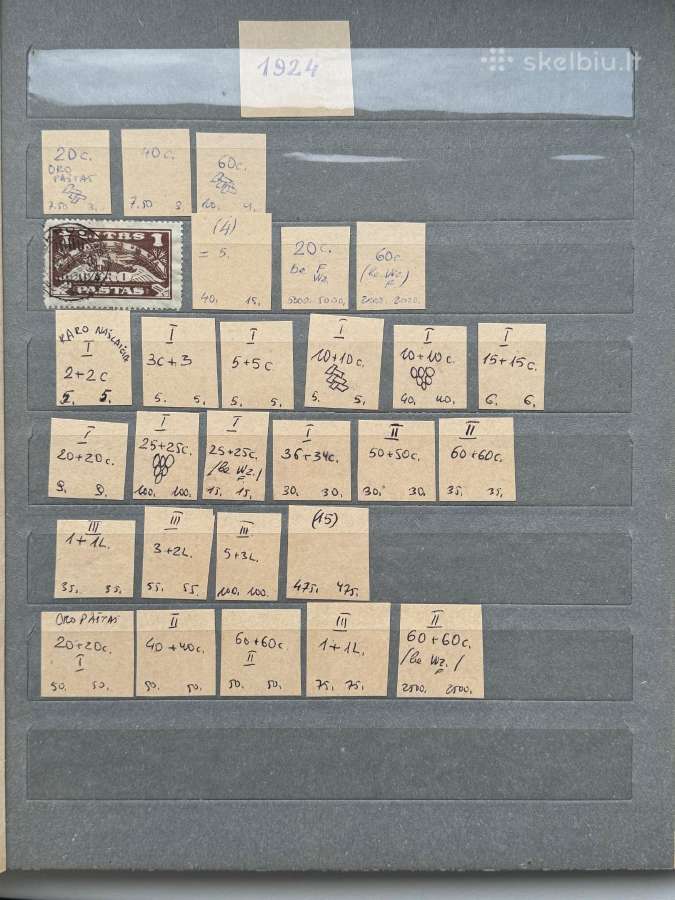 1924
skelbiu.lt
20c.
ORO
PAŠTAS
7.50 3.
40c.
7.50 3.
60c.
100. 4.
1
PAŠTAS
(4)
= 5.
40. 15.
20c.
be Wz.
5000. 5000.
60c
(be Wz.)
2000. 2000.
KARO NAŠLAIČIŲ
I
2+2c
5. 5.
I
3c+3
5. 5.
I
5+5c
5. 5.
I
10+10c.
5. 5.
I
10+10c.
40. 40.
I
15+15c.
6. 6.
I
20+20c.
9. 9.
I
25+25c.
100. 100.
I
25+25c.
/be Wz./
15. 15.
I
36+34c.
30. 30.
II
50+50c.
30. 30.
II
60+60c.
35. 35.
III
1+1L.
35. 35.
III
3+2L.
55. 55.
III
5+3L
100. 100.
(15)
475. 475.
ORO PAŠTAS
20+20c.
I
50. 50.
II
40+40c.
50. 50.
60+60c
II
50. 50.
III
1+1L.
75. 75.
II
60+60c.
/be Wz./
2500. 2500.